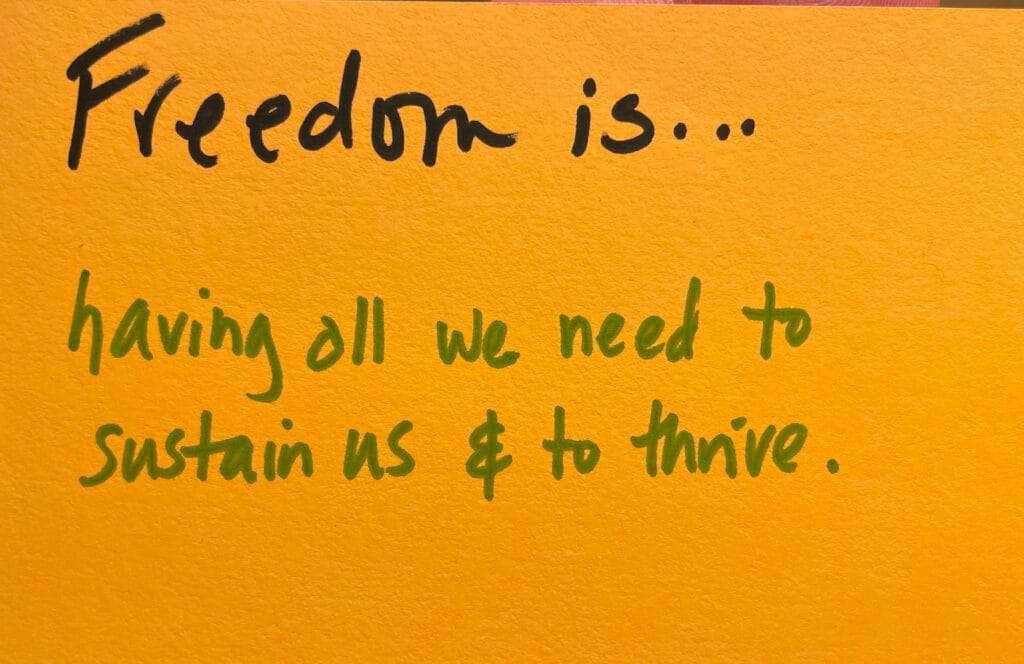 Freedom is...
having all we need to
sustain us & to thrive.